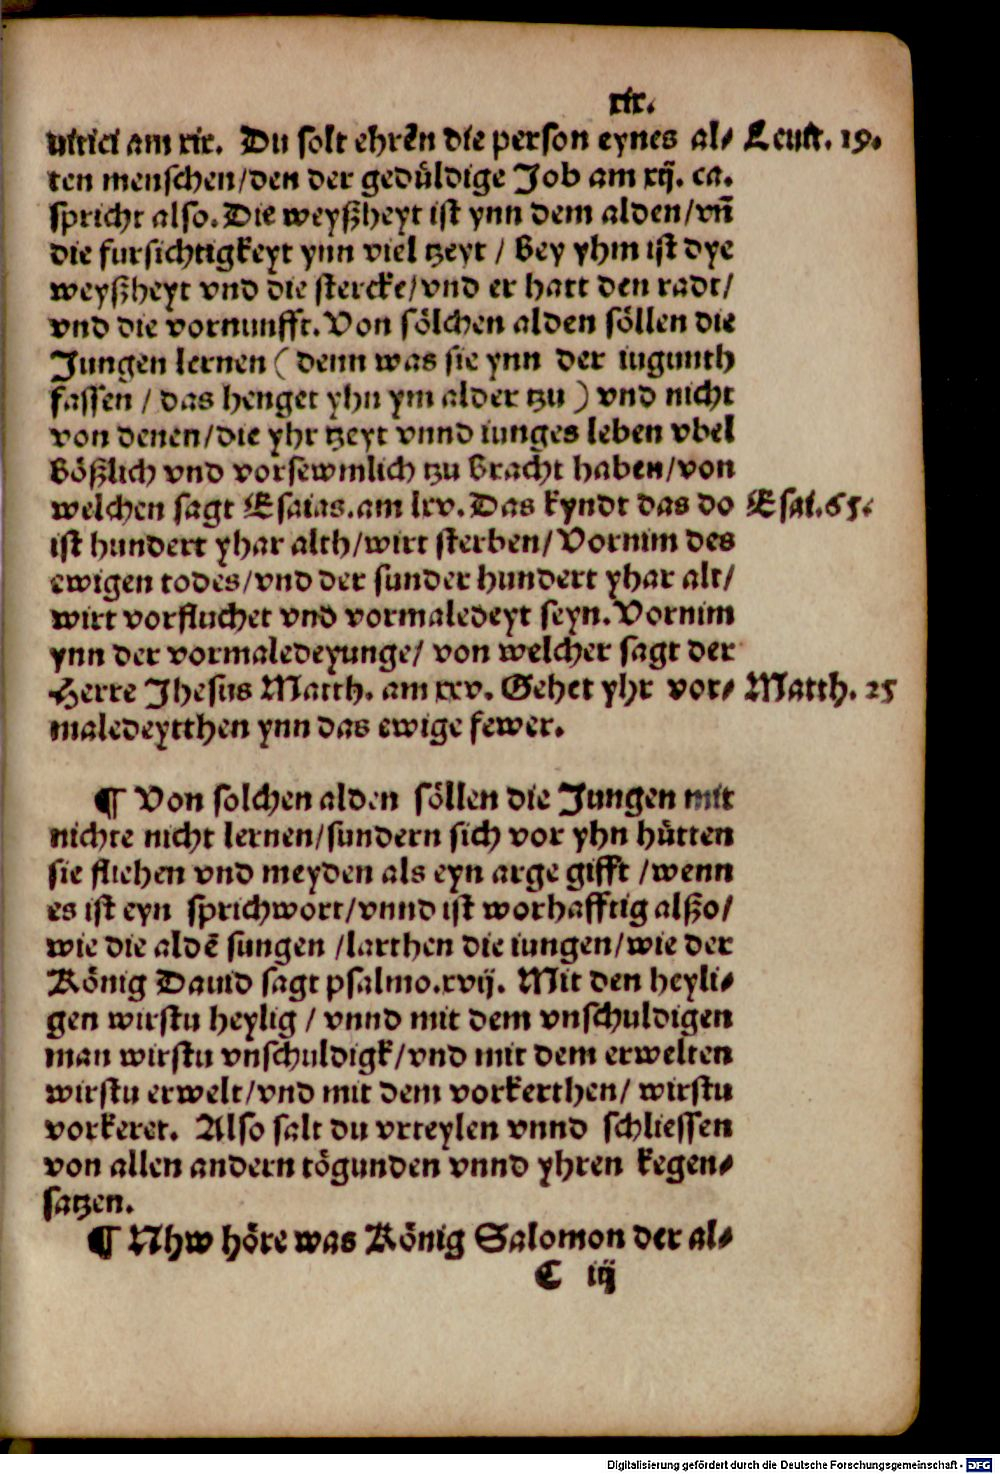 xix.
uitici am xix. Du solt ehrẽn die person eynes al⸗ Leuit. 19.
ten menschen/den der gedůldige Job am xij. ca.
spricht also. Die weyßheyt ist ynn dem alden/vñ
die fursichtigkeyt ynn viel tzeyt / Bey yhm ist dye
weyßheyt vnd die stercke/vnd er hatt den radt/
vnd die vornunfft. Von sölchen alden söllen die
Jungen lernen (denn was sie ynn der iugunth
fassen / das henget yhn ym alder tzu) vnd nicht
von denen/die yhr tzeyt vnnd iunges leben vbel
bößlich vnd vorsewmlich tzu bracht haben/von
welchen sagt Esaias. am lxv. Das kyndt das do Esai. 65.
ist hundert yhar alth/wirt sterben/Vornim des
ewigen todes/vnd der sunder hundert yhar alt/
wirt vorfluchet vnd vormaledeyt seyn. Vornim
ynn der vormaledeyunge/ von welcher sagt der
Herre Jhesus Matth. am xxv. Gehet yhr vor⸗ Matth. 25
maledeytthen ynn das ewige fewer.
¶ Von solchen alden söllen die Jungen mit
nichte nicht lernen/sundern sich vor yhn hůtten
sie fliehen vnd meyden als eyn arge gifft /wenn
es ist eyn sprichwort/vnnd ist worhafftig alßo/
wie die aldẽ sungen /larthen die iungen/wie der
König Dauid sagt psalmo. xvij. Mit den heyli⸗
gen wirstu heylig / vnnd mit dem vnschuldigen
man wirstu vnschuldigk/vnd mit dem erwelten
wirstu erwelt/vnd mit dem vorkerthen/ wirstu
vorkeret. Also salt du vrteylen vnnd schliessen
von allen andern tögunden vnnd yhren kegen⸗
satzen.
¶ Nhw höre was König Salomon der al⸗
C iij
Digitalisierung gefördert durch die Deutsche Forschungsgemeinschaft - DFG